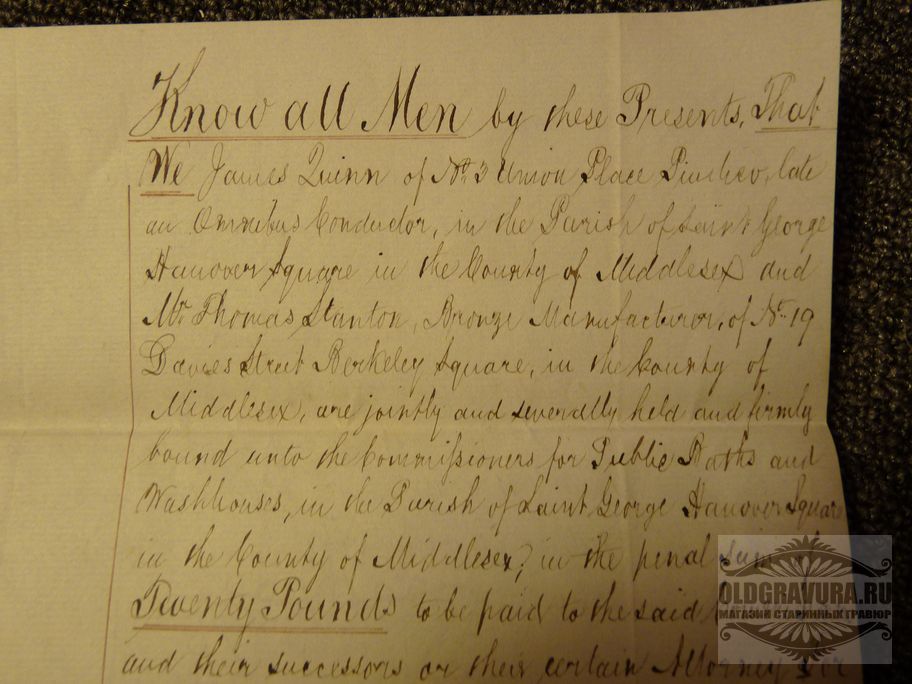 Know all Men by these Presents, That
We James Quinn of No. 3 Union Place Pimlico, late
an Omnibus Conductor, in the Parish of Saint George
Hanover Square in the County of Middlesex and
Mr. Thomas Stanton, Bronze Manufacturer, of No. 19
Davies Street Berkeley Square, in the County of
Middlesex, are jointly and severally held and firmly
bound unto the Commissioners for Public Baths and
Washhouses, in the Parish of Saint George Hanover Square
in the County of Middlesex, in the penal Sum of
Twenty Pounds to be paid to the said
and their successors or their certain Attorney
OLDGRAVURA.RU
МАГАЗИН СТАРИННЫХ ГРАВЮР